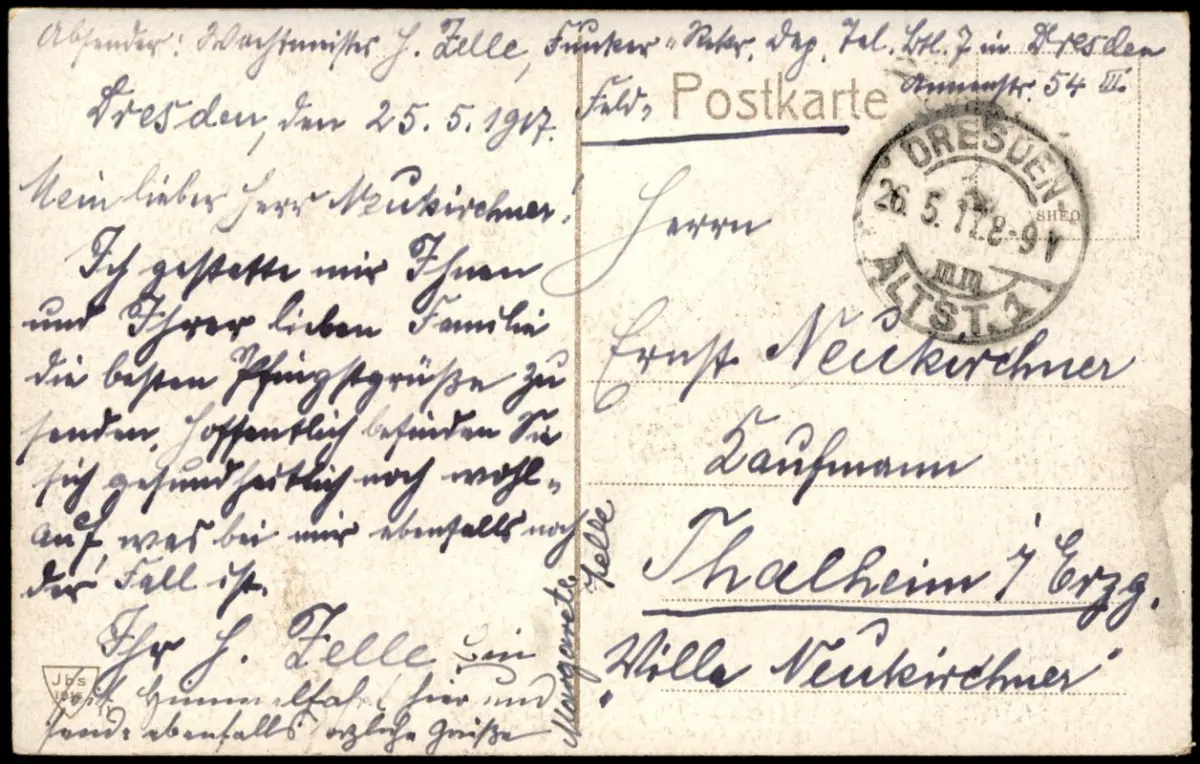 Absender: Wachtmeister H. Zelle, Funker-Rekr. Dep. Tel. Btl. 7 in Dresden
Annenstr. 54 III.
Dresden, den 25.5.1917.
Mein lieber Herr Neukirchner!
Ich gestatte mir Ihnen
und Ihrer lieben Familie
die besten Pfingstgrüße zu
senden. Hoffentlich befinden Sie
sich gesundheitlich noch wohl-
auf, was bei mir ebenfalls noch
der Fall ist.
Ihr H. Zelle
Bin
seit Himmelfahrt hier und
sende ebenfalls herzliche Grüße
Margarete Zelle
Jbs
Feld-
Postkarte
DRESDEN-
26.5.17.8-9V
ALTST.1
Herrn
Ernst Neukirchner
Kaufmann
Thalheim i/Erzg.
"Villa Neukirchner"